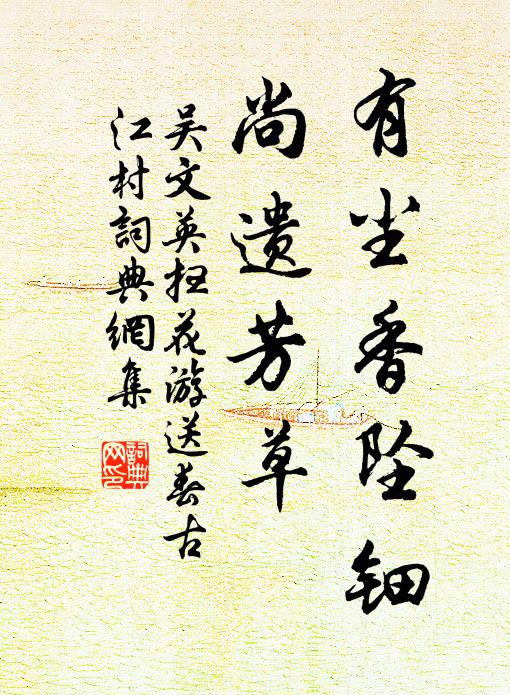 有尘香坠钿
尚遗芳草
吴文英扫花游送春古
江村詞典網集
詞典网印